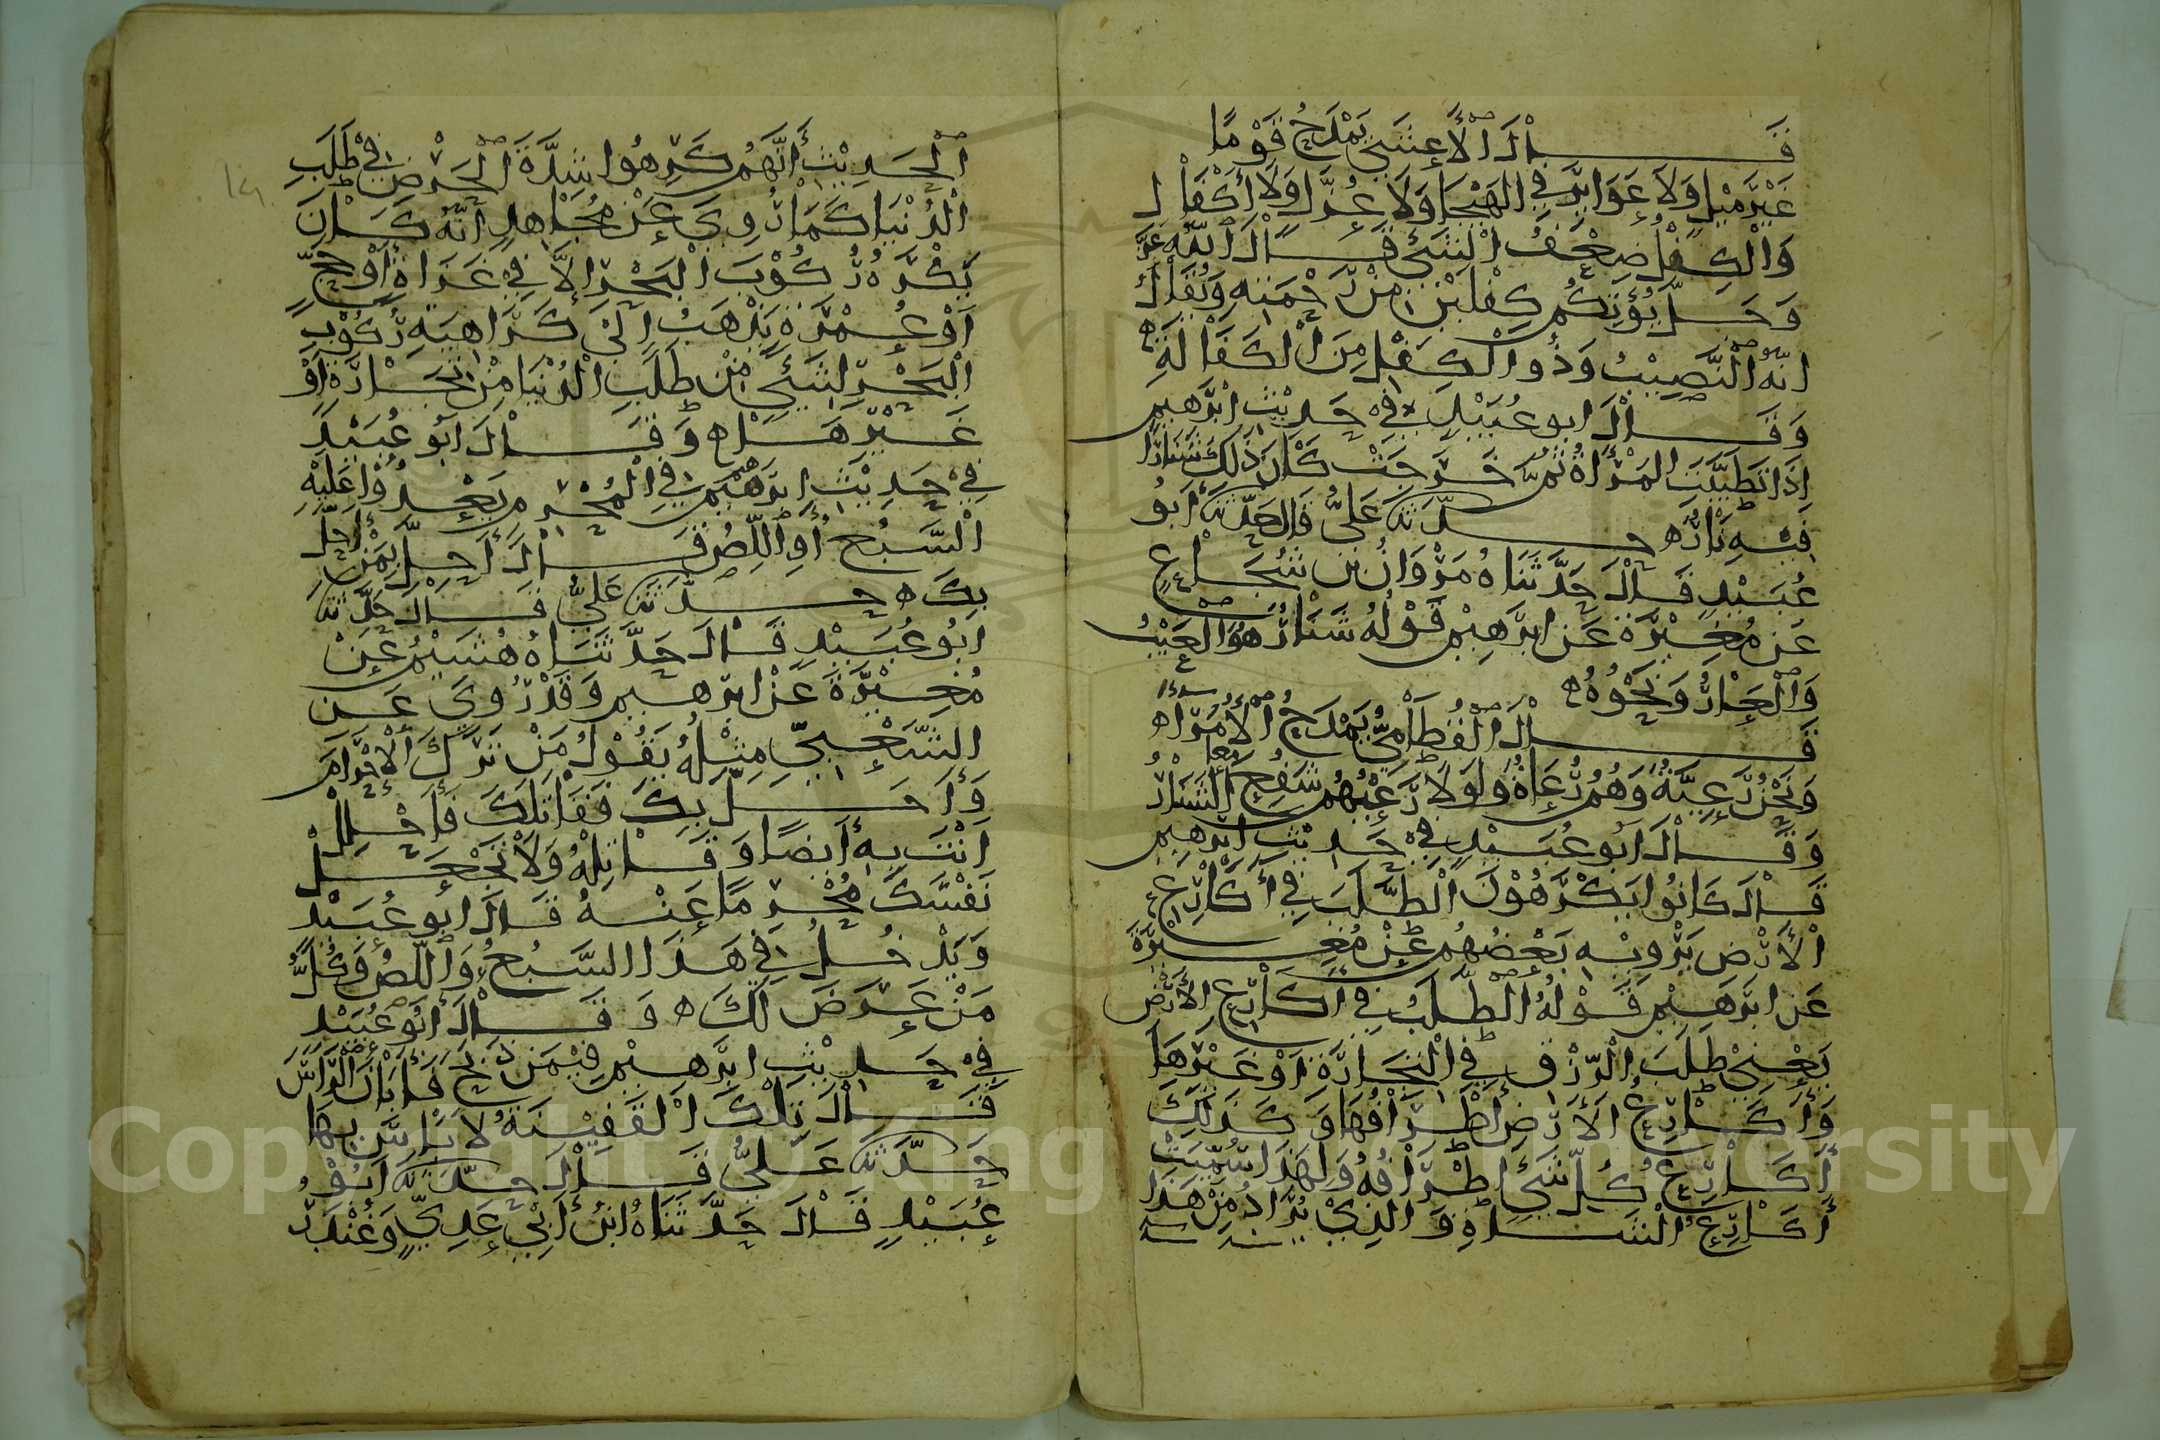 قَــــالَ الْأَعْشَى يَمْدَحُ قَوْمًا
غَيْرُ مِيْلٍ وَلَا عَوَاوِيْرَ فِي الهَيْجَا وَلَا عُزَّلٍ وَلَا أَكْفَالِ
وَالْكِفْلُ ضِعْفُ الشَّئِ قَــالَ اللّٰهُ عَزَّ
وَجَــلَّ يُؤْتِكُمْ كِفْلَيْنِ مِنْ رَحْمَتِهِ وَيُقَالُ
انَّهُ النَّصِيْبُ وَذُو الْكِفْلِ مِنَ الْكَفَالَةِ ه
وَقَــالَ ابو عُبَيْدٍ فِي حَدِيْثِ ابْرَهِيمَ
اِذَا تَطَيَّبَتِ المَرْأَةُ ثُمَّ خَرَجَتْ كَانَ ذَلِكَ شَنَارًا
فِيْهِ نَارٌ ه حــدّثَنَا عَلِيٌّ قَالَ حَدّثَنَا أَبُو
عُبَيْدٍ قَــالَ حَدَّثَنَاهُ مَرْوَانُ بْن شُجَــاعٍ
عَن مُغِيْرَةَ عَن ابْرَهِيْم قَوْلُهُ شَنَارٌ هُوَ الْعَيْبُ
وَالْعَارُ وَنَحْوُهُ ه
قَــــالَ الْقُطَامِيُّ يَمْدَحُ الْأُمَرَاءَ
وَنَحْنُ رَعِيَّةٌ وَهُمُ رُعَاةٌ وَلَولَا رَعْيُهُم شَنُعَ الشَّنَارُ
وَقَــالَ ابُو عُبَيْدٍ فِي حَدِيْثِ ابْرَهِيم
قَــالَ كَانُوا يَكْرَهُوْنَ الْطَّلَبَ فِي أَكَارِعِ
الْأَرْضِ يَرْوِيْهِ بَعْضُهُم عَنْ مُغِيْرَةَ
عَن ابْرَهِيْم قَوْلُهُ الْطَّلَبُ فِي اكَارِعِ الأَرْضِ
يَعْنِيْ طَلَبَ الْرِّزْقِ فِي الْتِّجَارَةِ اَوْ غَيْرِهَا
وَأَكَــارِعُ الأَرْضِ أَطْرَافُهَا وَكَذَلِكَ
أَكَــارِعُ كُلِّ شَيْءٍ اَطْرَافُهُ وَلِهَذَا سُمِّيَتْ
أَكَــارِعُ الْشَّــاةِ وَالذِيْ يُرَادُ مِنْ هَذَا
الْحَدِيْثِ أَنَّهُم كَرِهُوا شِدَّةَ الْحِرْصِ فِيْ طَلَبِ
الْدُنْيَا كَمَا رُوِيَ عَنْ مُجَاهِدٍ اَنَّهُ كَــانَ
يَكْرَهُ رُكُوْبَ الْبَحْرِ إِلَّا فِي غَزَاةٍ أَوْ حَجٍّ
اَوْ عُــمْرَةٍ يَذْهَبُ إِلَى كَرَاهِيَةِ رُكُوْبِ
الْبَحْرِ لِشَيْءٍ مِن طَلَبِ الْدُنْيَا مِنْ تِجَــارَةٍ اَوْ
غَــيْرِهَــا ه وَقَــالَ ابُو عُبَيْدٍ
فِيْ حَدِيْثِ ابْرَهِيْم فِي الْمُحْرِمِ يَعْدُوْا عَلَيْهِ
الْسَّبُعُ أَوِ الْلِّصُّ قَــالَ أَحِلَّ بِمَنْ أَحَلَّ
بِكَ ه حــدّثَنَا عَلِيٌّ قَــالَ حَدَّثَنَا
ابُو عُبَيْدٍ قَــالَ حَدَّثَنَاهُ هُشَيْمٌ عَنْ
مُغِــيْرَةَ عَنْ ابْرَهِيم وَقَدْ رُوِيَ عَــن
الشَّعْبِيِّ مِثْلُهُ يَقُوْلُ مَنْ تَرَكَ الْاحْرَامَ
وَأَحَــلَّ بِكَ فَقَاتَلَكَ فَاَحْلِلْ
اَنْتَ بِهِ أَيضًا وَقَــاتِلْهُ وَلَا تَجْعَــلْ
نَفْسَكَ مُحْرِمًا عَنْهُ قَــالَ ابُو عُبَيْدٍ
وَيَدْخُلُ فِي هَذَا السَّبُعُ وَاللِّصُّ وَكُلُّ
مَنْ عَــرَضَ لَكَ ه وَقَــالَ أَبُو عُبَيْدٍ
فِي حَدِيْثِ ابْرَهِيْم فِيْمَن ذَبَحَ فَأَبَانَ الْرَّاْسَ
قَــالَ تِلْكَ الْقَفِيْنَةُ لَا بَاْسَ بِهَا
حَدَّثَنَا عَلِيٌّ قَــالَ حَدّثَنَا اَبُوْ
عُبَيْدٍ قَــالَ حَدَّثَنَاهُ ابْنُ أَبِيْ عَدِيٍّ وَغُنْدَرٌ